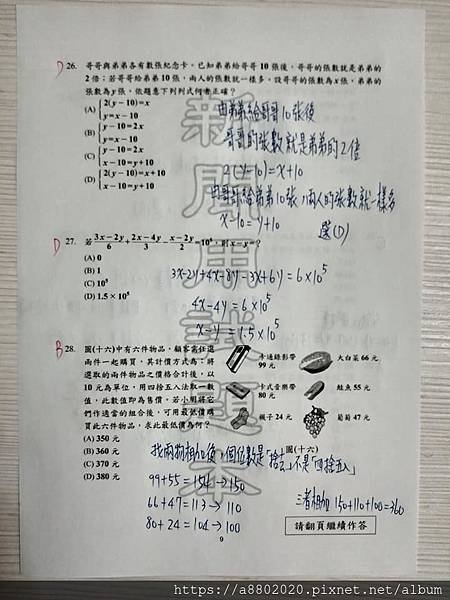 D 26. 哥哥與弟弟各有數張紀念卡。已知弟弟給哥哥 10 張後,哥哥的張數就是弟弟的
2 倍;若哥哥給弟弟 10 張,兩人的張數就一樣多。設哥哥的張數為 x 張,弟弟的
張數為 y 張,依題意下列列式何者正確?
(A) { 2(y-10)=x
y=x-10
(B) { y-10=2x
y=x-10
(C) { y-10=2x
x-10=y+10
(D) { 2(y-10)=x+10
x-10=y+10
由弟弟給哥哥10張後
哥哥的張數就是弟弟的2倍
2(y-10)=x+10
由哥哥給弟弟10張,兩人的張數就一樣多
x-10=y+10
選(D)
D 27. 若 (3x-2y)/6 + (2x-4y)/3 - (x-2y)/2 = 10⁵,則 x-y=?
(A) 0
(B) 1
(C) 10⁵
(D) 1.5×10⁵
3x-2y+4x-8y-3x+6y=6×10⁵
4x-4y=6×10⁵
x-y=1.5×10⁵
B 28. 圖(十六)中有六件物品,顧客需任選
兩件一起購買,其計價方式為:將
選取的兩件物品之價格合計後,以
10 元為單位,用四捨五入法取一數
值,此數值即為售價。若小明將它
們作適當的組合後,可用最低價購
買此六件物品,求此最低價為何?
(A) 350 元
(B) 360 元
(C) 370 元
(D) 380 元
卡通錄影帶
99 元
大白菜 66 元
卡式音樂帶
80 元
鮭魚 55 元
襪子 24 元
葡萄 47 元
圖(十六)
找兩物相加後,個位數是「捨去」不是「四捨五入」
99+55=154→150
66+47=113→110
80+24=104→100
三者相加 150+110+100=360
請翻頁繼續作答
9
新聞用試題本
https://a8802020.pixnet.net/album